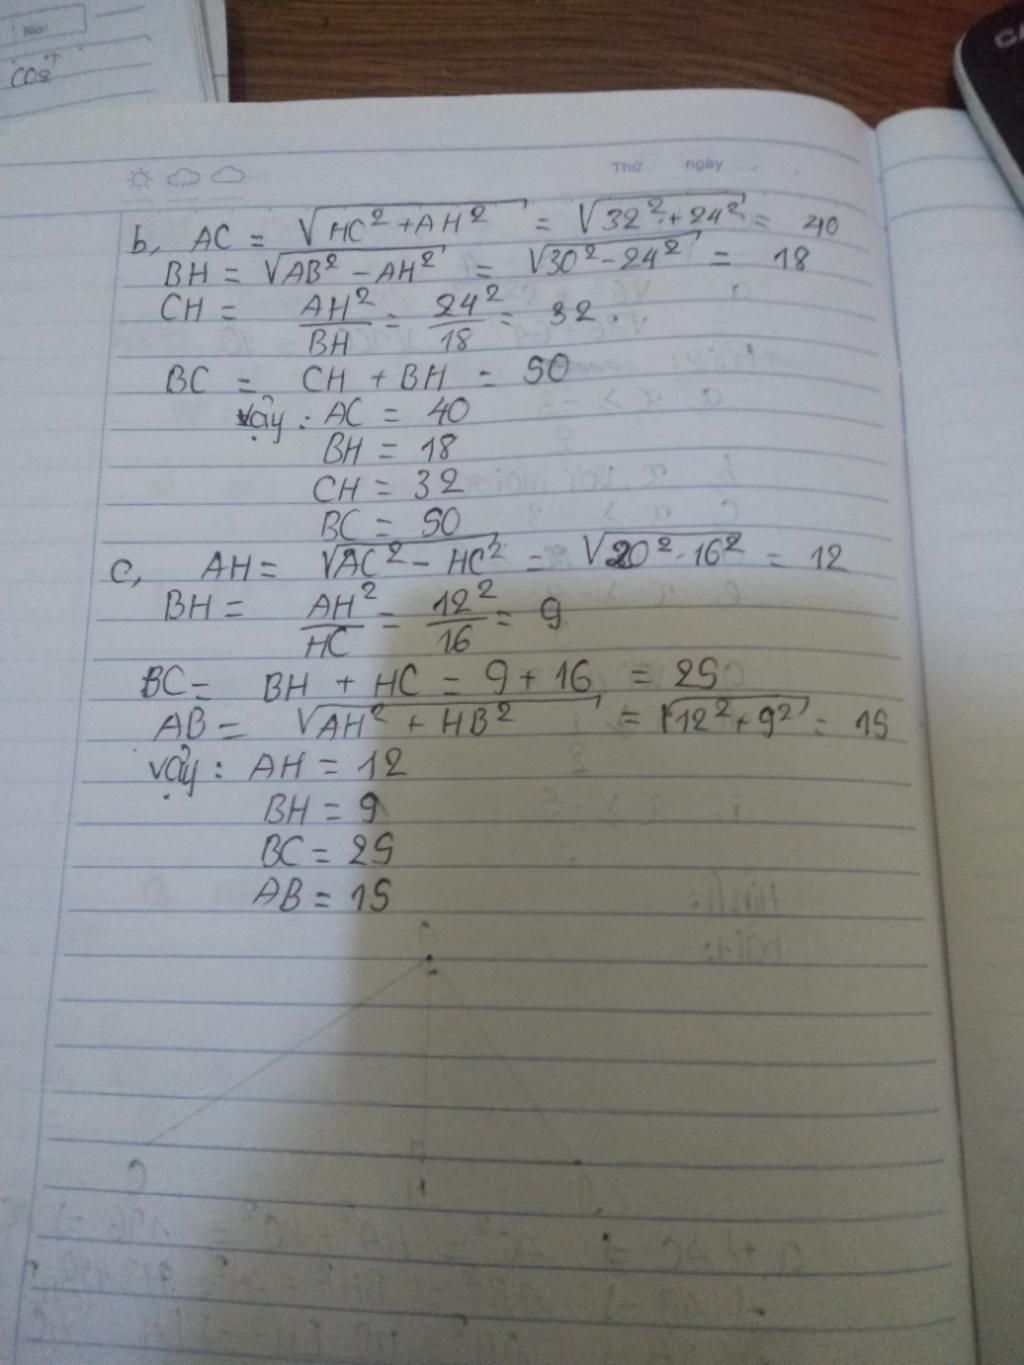 No:
cos
Thứ ngày
b, AC = √HC² + AH² = √32² + 24² = 40
BH = √AB² - AH² = √30² - 24² = 18
CH = AH²/BH = 24²/18 = 32.
BC = CH + BH = 50
vậy: AC = 40
BH = 18
CH = 32
BC = 50
c, AH = √AC² - HC² = √20² - 16² = 12
BH = AH²/HC = 12²/16 = 9
BC = BH + HC = 9 + 16 = 25
AB = √AH² + HB² = √12² + 9² = 15
vậy: AH = 12
BH = 9
BC = 25
AB = 15